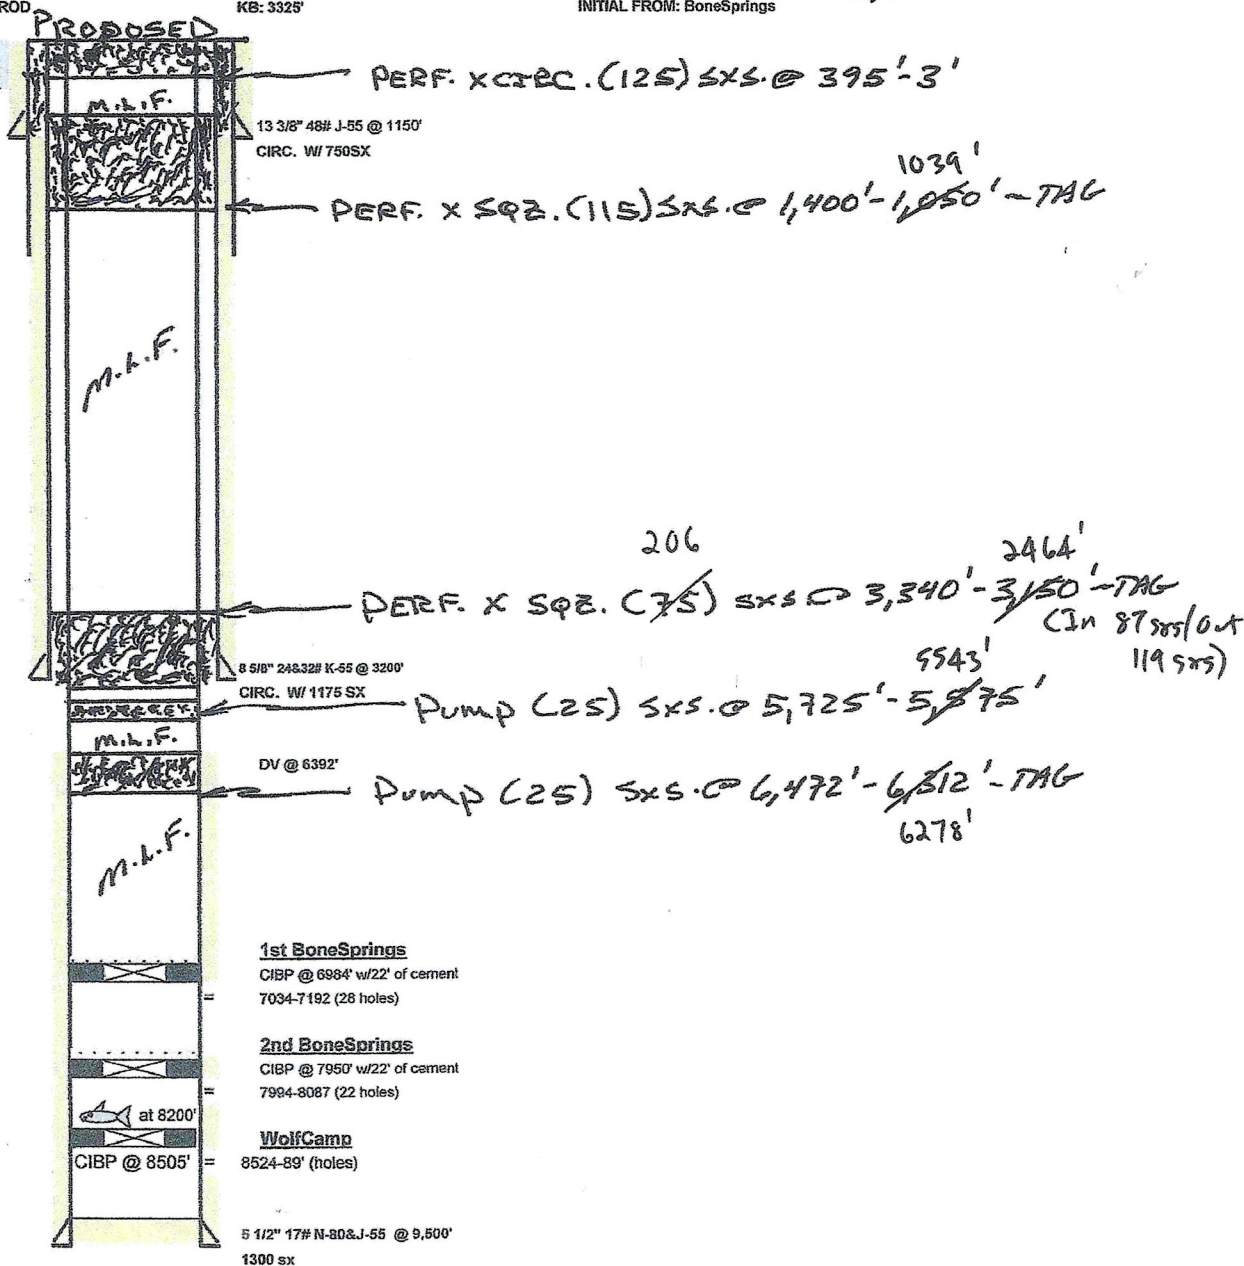 ROD
KB: 3325'
INITIAL FROM: BoneSprings
PROPOSED
PERF. X CIRC. (125) SXS. @ 395'-3'
M.L.F.
13 3/8" 48# J-55 @ 1150'
CIRC. W/ 750SX
1039'
PERF. X SQZ. (115) SXS. @ 1,400'-1,050'-TAG
M.L.F.
206
2464'
PERF. X SQZ. (75) SXS @ 3,340'-3,150'-TAG
(In 87 sxs/out
119 sxs)
8 5/8" 24&32# K-55 @ 3200'
CIRC. W/ 1175 SX
5543'
Pump (25) SXS. @ 5,725'-5,575'
M.L.F.
DV @ 6392'
Pump (25) SXS. @ 6,472'-6,312'-TAG
6278'
M.L.F.
1st BoneSprings
CIBP @ 6984' w/22' of cement
7034-7192 (28 holes)
=
2nd BoneSprings
CIBP @ 7950' w/22' of cement
7994-8087 (22 holes)
=
at 8200'
WolfCamp
CIBP @ 8505' = 8524-89' (holes)
5 1/2" 17# N-80&J-55 @ 9,500'
1300 sx